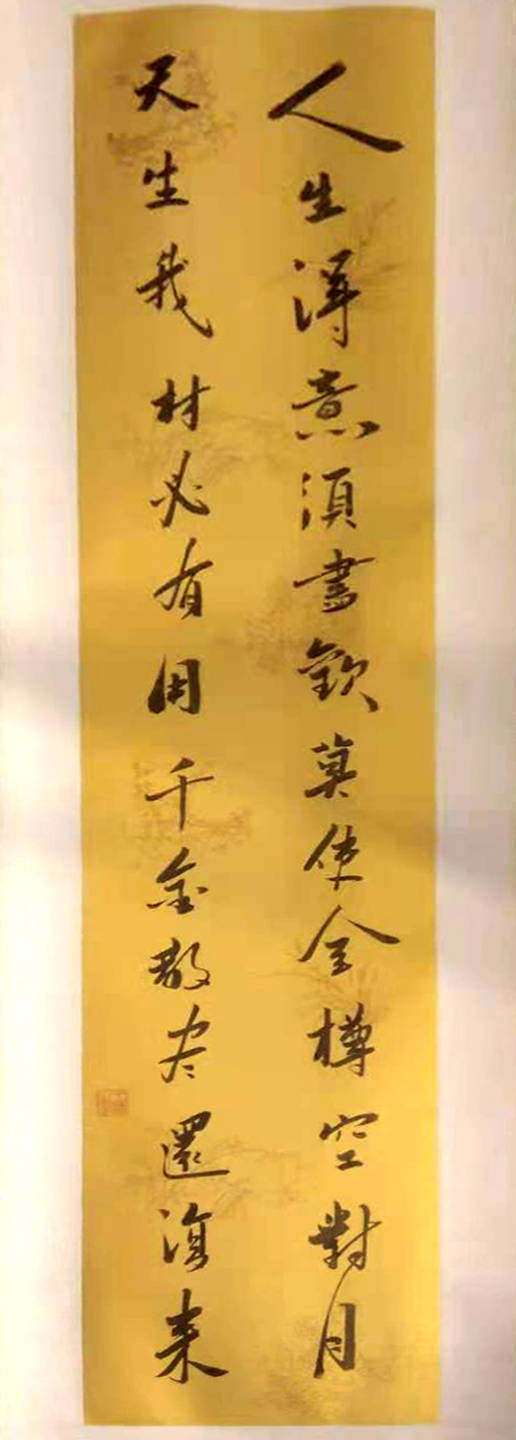 人生得意须尽歡莫使金樽空對月
天生我材必有用千金散尽還復来